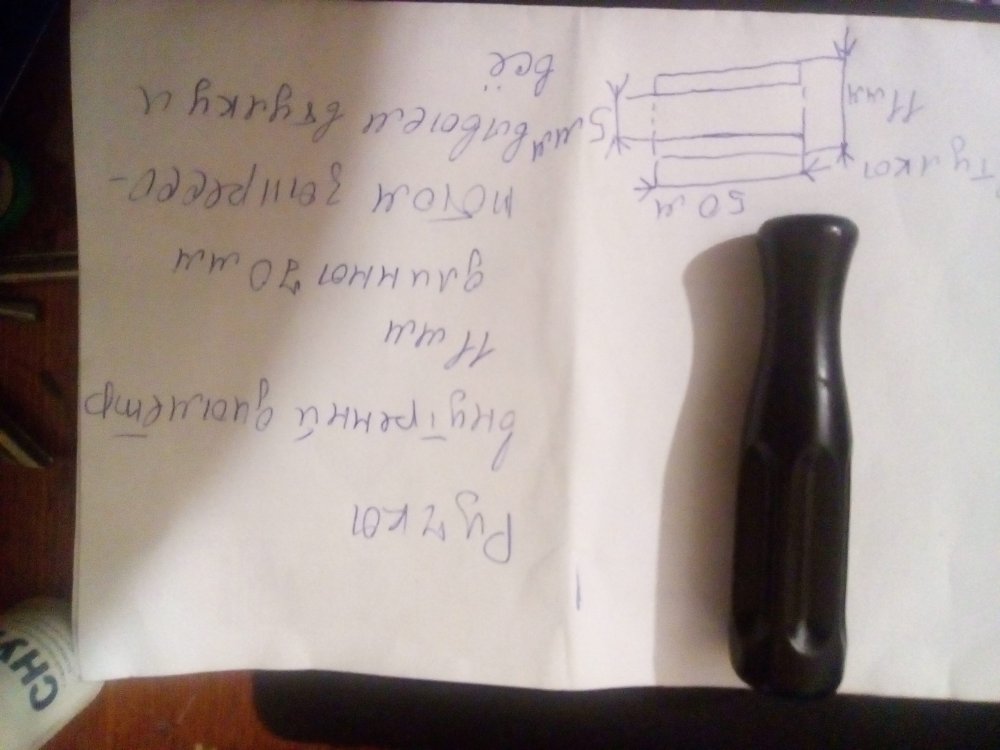 Ручка
внутренний диаметр
11 мм
длинна 70 мм
потом запрессо-
вываем втулку и
всё
50 м
тулка
11 мм
5 мм